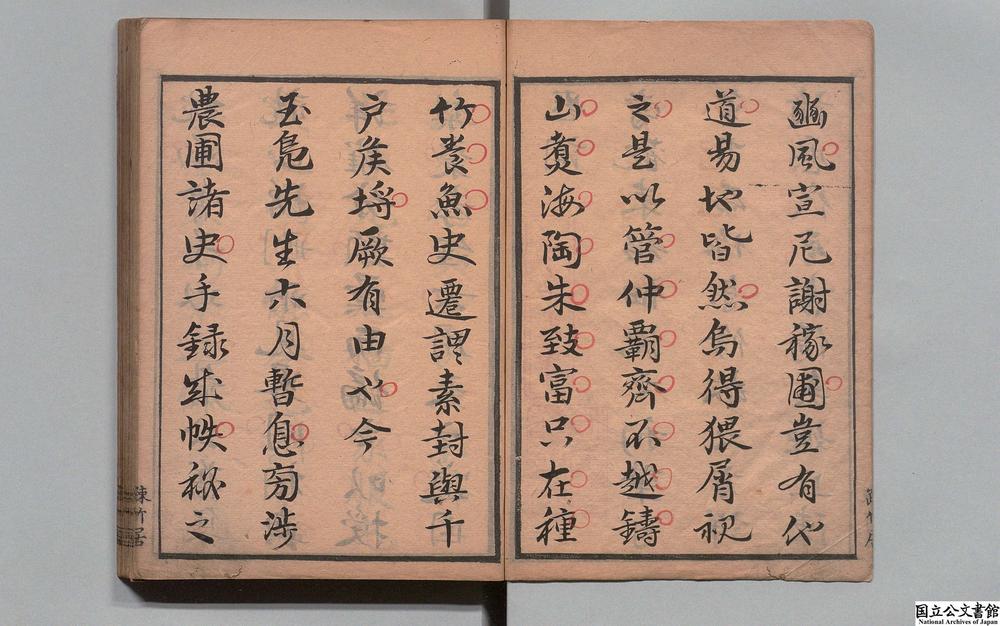 豳風宣尼謝稼圃豈有他
道易地皆然烏得猥屑視
之是以管仲霸齊不越鑄
山煑海陶朱致富只在種
竹養魚史遷謂素封與千
户矦埒厥有由也今
玉鳧先生六月暫息旁涉
農圃諸史手録成帙秘之
陳竹居
国立公文書館
National Archives of Japan